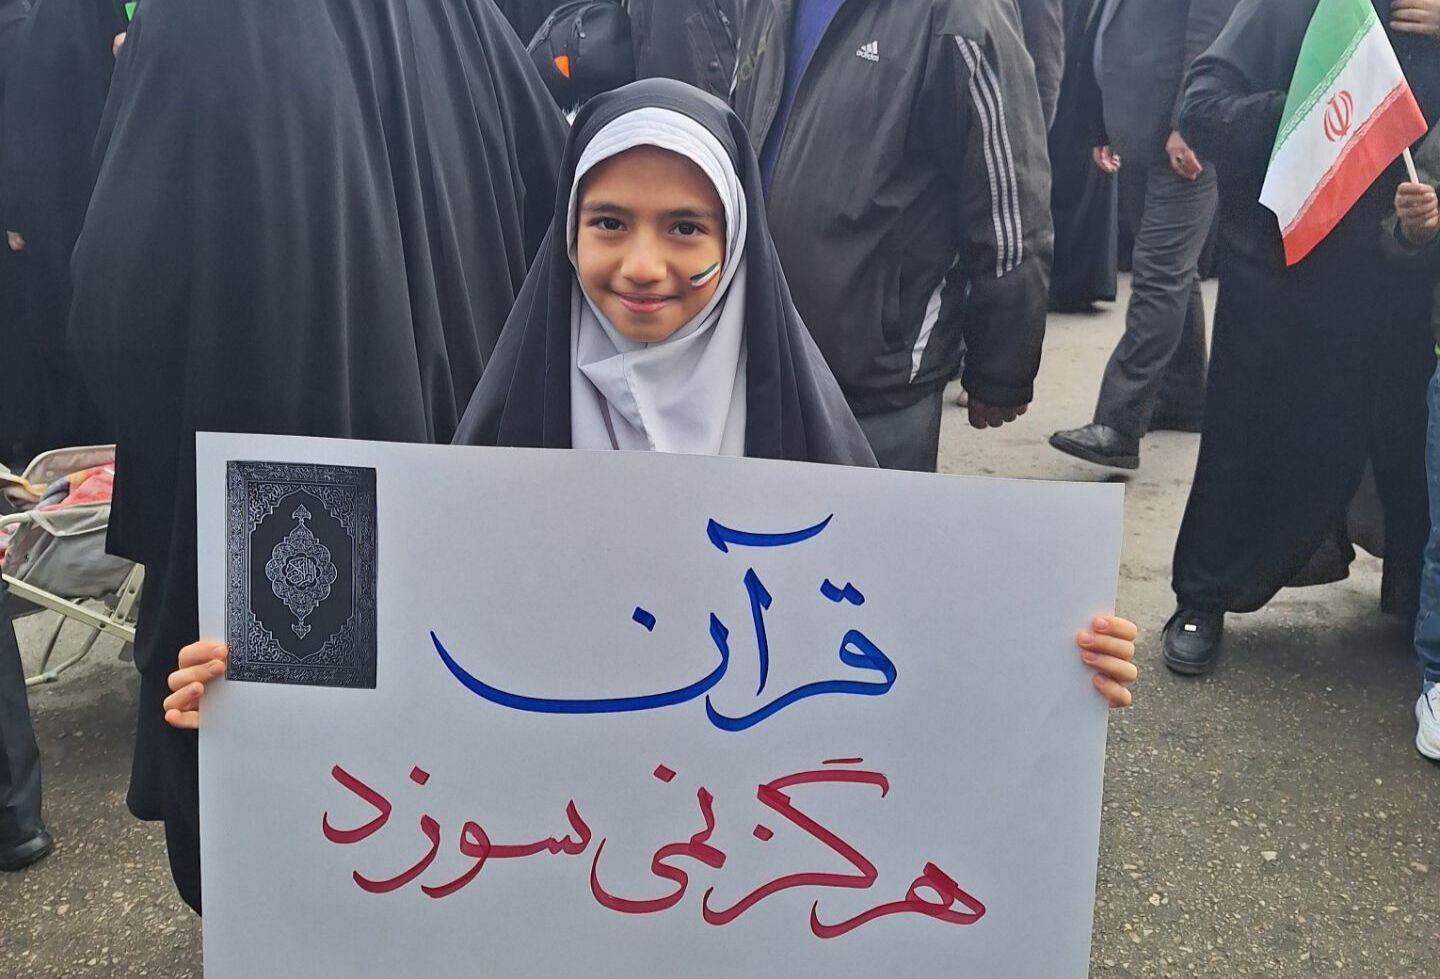 adidas
قرآن
هرگز نمی سوزد